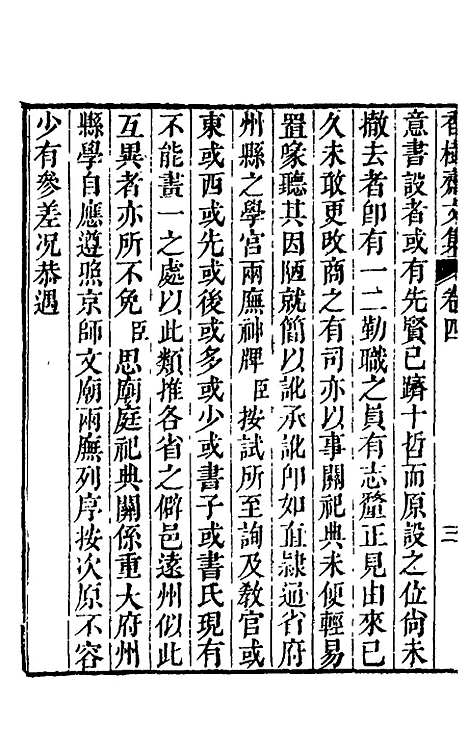 香樹齋文集 卷四 三
意書設者或有先賢已躋十哲而原設之位尙未
撤去者卽有一二勤職之員有志釐正見由來已
久未敢更改商之有司亦以事關祀典未便輕易
置喙聽其因陋就簡以訛承訛卽如直隸通省府
州縣之學宮兩廡神牌臣按試所至詢及敎官或
東或西或先或後或多或少或書子或書氏現有
不能畫一之處以此類推各省之僻邑遠州似此
互異者亦所不免臣思廟庭祀典關係重大府州
縣學自應遵照京師文廟兩廡列序按次原不容
少有參差况恭遇